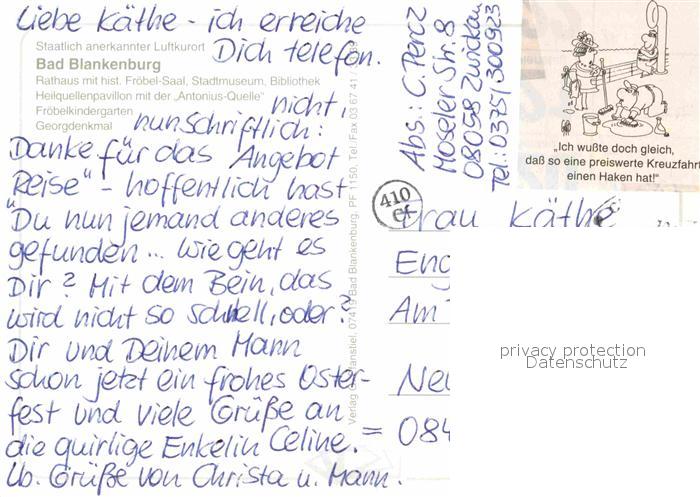 Liebe Käthe - ich erreiche
Dich telefon.
nicht,
nun schriftlich:
Danke für das Angebot
"Reise" - hoffentlich hast
Du nun jemand anderes
gefunden... Wie geht es
Dir? Mit dem Bein, das
wird nicht so schnell, oder?
Dir und Deinem Mann
schon jetzt ein frohes Oster-
fest und viele Grüße an
die quirlige Enkelin Celine. =
Lb. Grüße von Christa u. Mann.
Staatlich anerkannter Luftkurort
Bad Blankenburg
Rathaus mit hist. Fröbel-Saal, Stadtmuseum, Bibliothek
Heilquellenpavillon mit der „Antonius-Quelle"
Fröbelkindergarten
Georgdenkmal
07419 Bad Blankenburg, PF 1150, Tel/Fax 03 67 41 /
Abs.: C. Peroz
Moseler Str. 8
08058 Zwickau
Tel.: 0375/300923
„Ich wußte doch gleich,
daß so eine preiswerte Kreuzfahrt
einen Haken hat!"
410
Frau Käthe
Am
084
privacy protection
Datenschutz